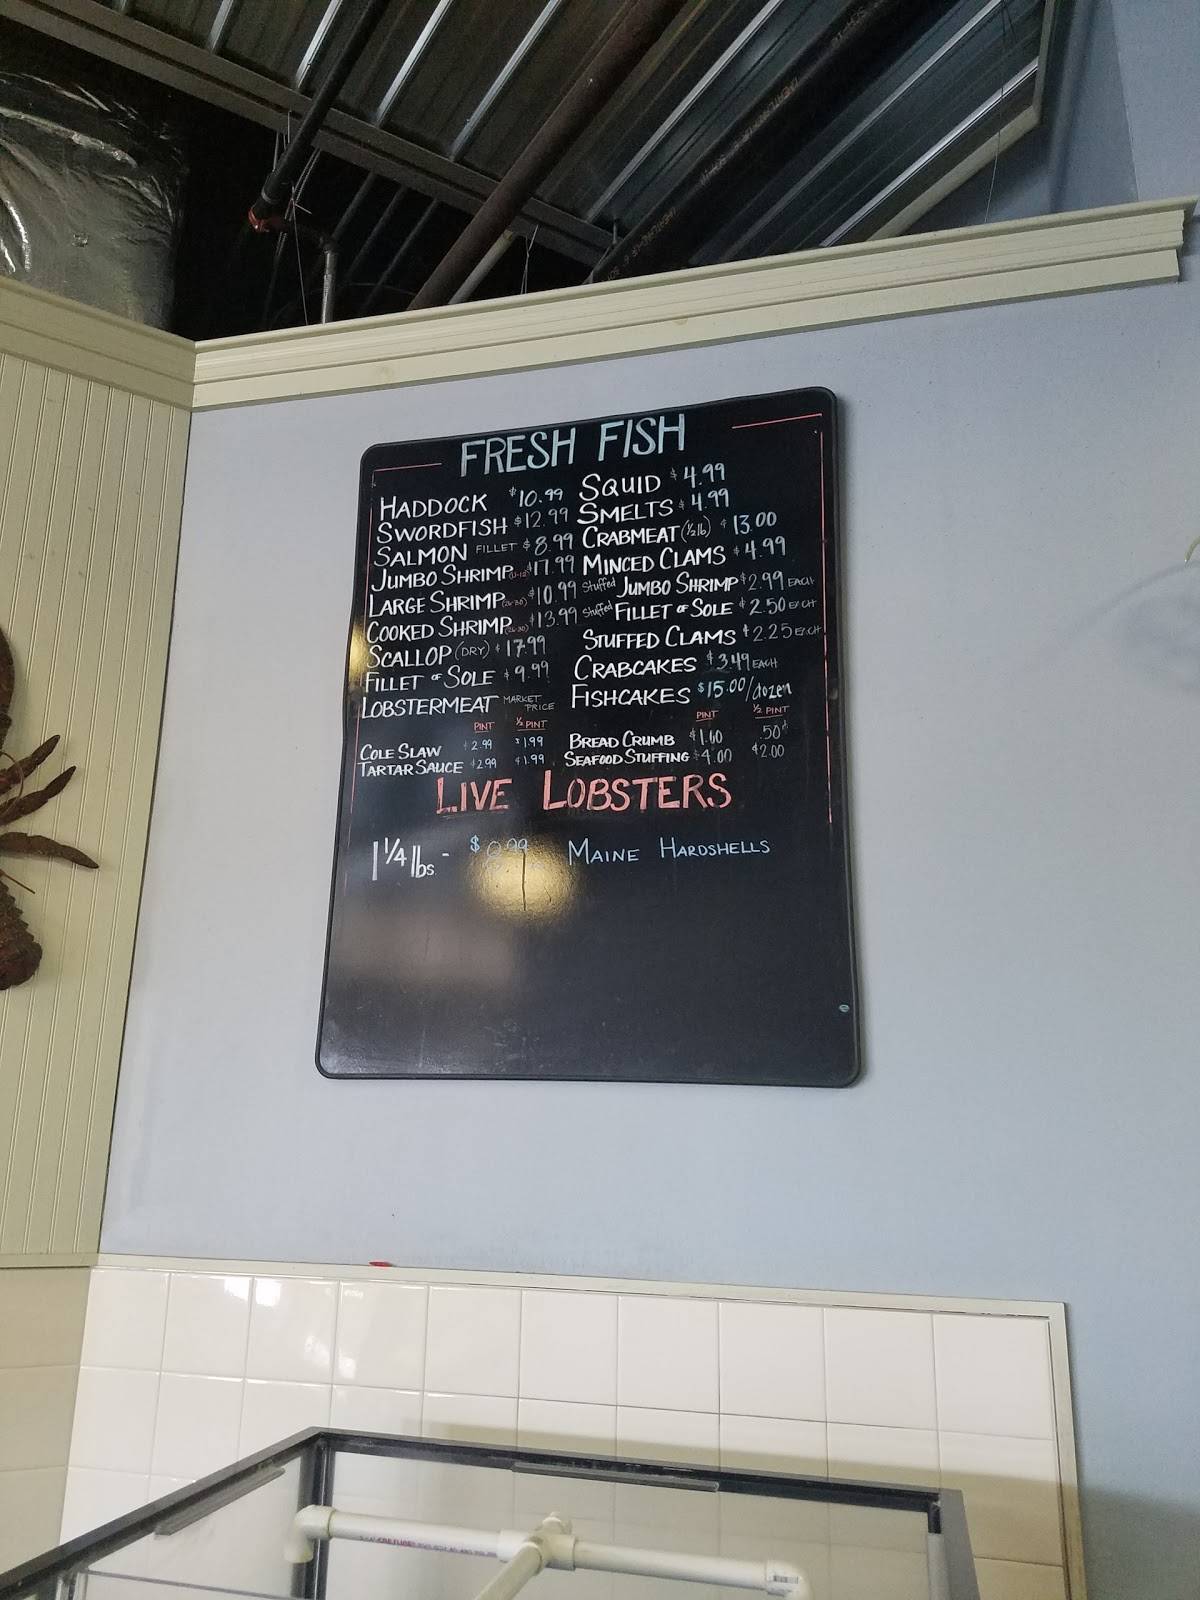 FRESH FISH
HADDOCK $10.99
SWORDFISH $12.99
SALMON FILLET $8.99
JUMBO SHRIMP (U-12) $17.99
LARGE SHRIMP (26-30) $10.99
COOKED SHRIMP (26-30) $13.99
SCALLOP (DRY) $17.99
FILLET OF SOLE $9.99
LOBSTERMEAT MARKET PRICE
SQUID $4.99
SMELTS $4.99
CRABMEAT (½lb) $13.00
MINCED CLAMS $4.99
Stuffed JUMBO SHRIMP $2.99 EACH
Stuffed FILLET OF SOLE $2.50 EACH
STUFFED CLAMS $2.25 EACH
CRABCAKES $3.49 EACH
FISHCAKES $15.00/dozen
PINT ½ PINT
COLE SLAW $2.99 $1.99
TARTAR SAUCE $2.99 $1.99
PINT ½ PINT
BREAD CRUMB $1.00 .50¢
SEAFOOD STUFFING $4.00 $2.00
LIVE LOBSTERS
1 ¼ lbs. - $ MAINE HARDSHELLS